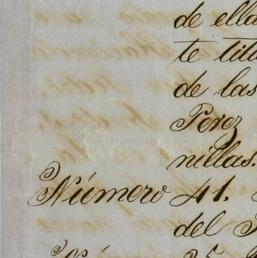 de ella
te titu
de las
Perez
nillas.
Número 41.
del